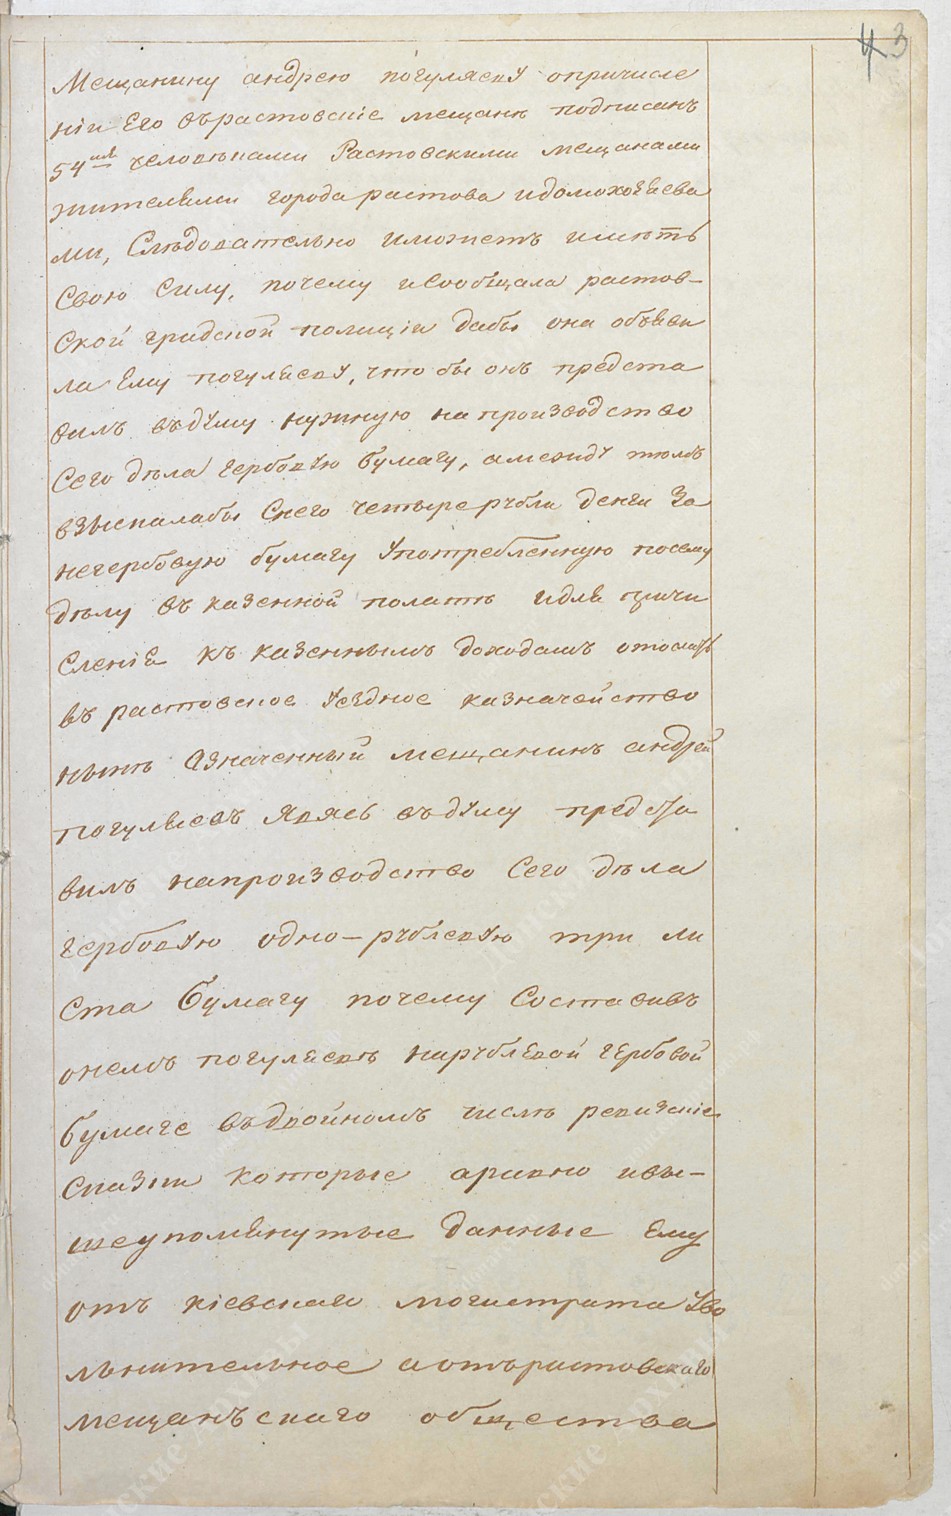 43
Мещанину андрею погуляеву опричисле
ніи Его въ растовскіе мещане подписанъ
54мя человѣками Растовскими мещанами
жителями города растова и домохозяева
ми, Следовательно и можетъ имѣть
Свою Силу, почему и Сообщала растов-
ской градской полиціи дабы она объяви
ла Ему погуляеву, что бы онъ предста
вилъ въ думу нужную на производство
Сего дѣла гербовую бумагу, а между темъ
взыскалабы Снего четыре рубли денги за
негербовую бумагу употребленную посему
дѣлу въ казенной полате и для причи
сленія къ казеннымъ доходамъ отослать
въ растовское уездное казначейство
ныне означенный мещанинъ андрей
погуляевъ явясь въ думу предста
вилъ на производство Сего дѣла
гербовую одно-рублевую три ли
ста бумагу почему Составивъ
онемъ погуляеве на рублевой гербовой
бумаге въ двойномъ числе ревизскіе
Сказки которые аравно и вы-
шеупомянутые данные Ему
отъ кіевскаго могистрата уво
льнительное а отъ ростовскаго
мещанъскаго общества